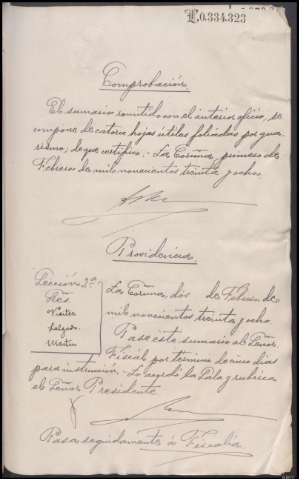 L.0.334.323
Comprobación
El sumario remitido con el anterior oficio, se
compone de catorce hojas útiles foliadas por gua
rismo; de que certifico.- La Coruña, primero de
Febrero de mil novecientos treinta y ocho.
Providencia
Sección 2ª
Sres.
Salgado.
Martín
La Coruña, dos de Febrero de
mil novecientos treinta y ocho
Pase este sumario al Señor
Fiscal por término de cinco días
para instrucción.- Lo acordó la Sala y rubrica
el Señor Presidente
Pasa seguidamente á Fiscalía